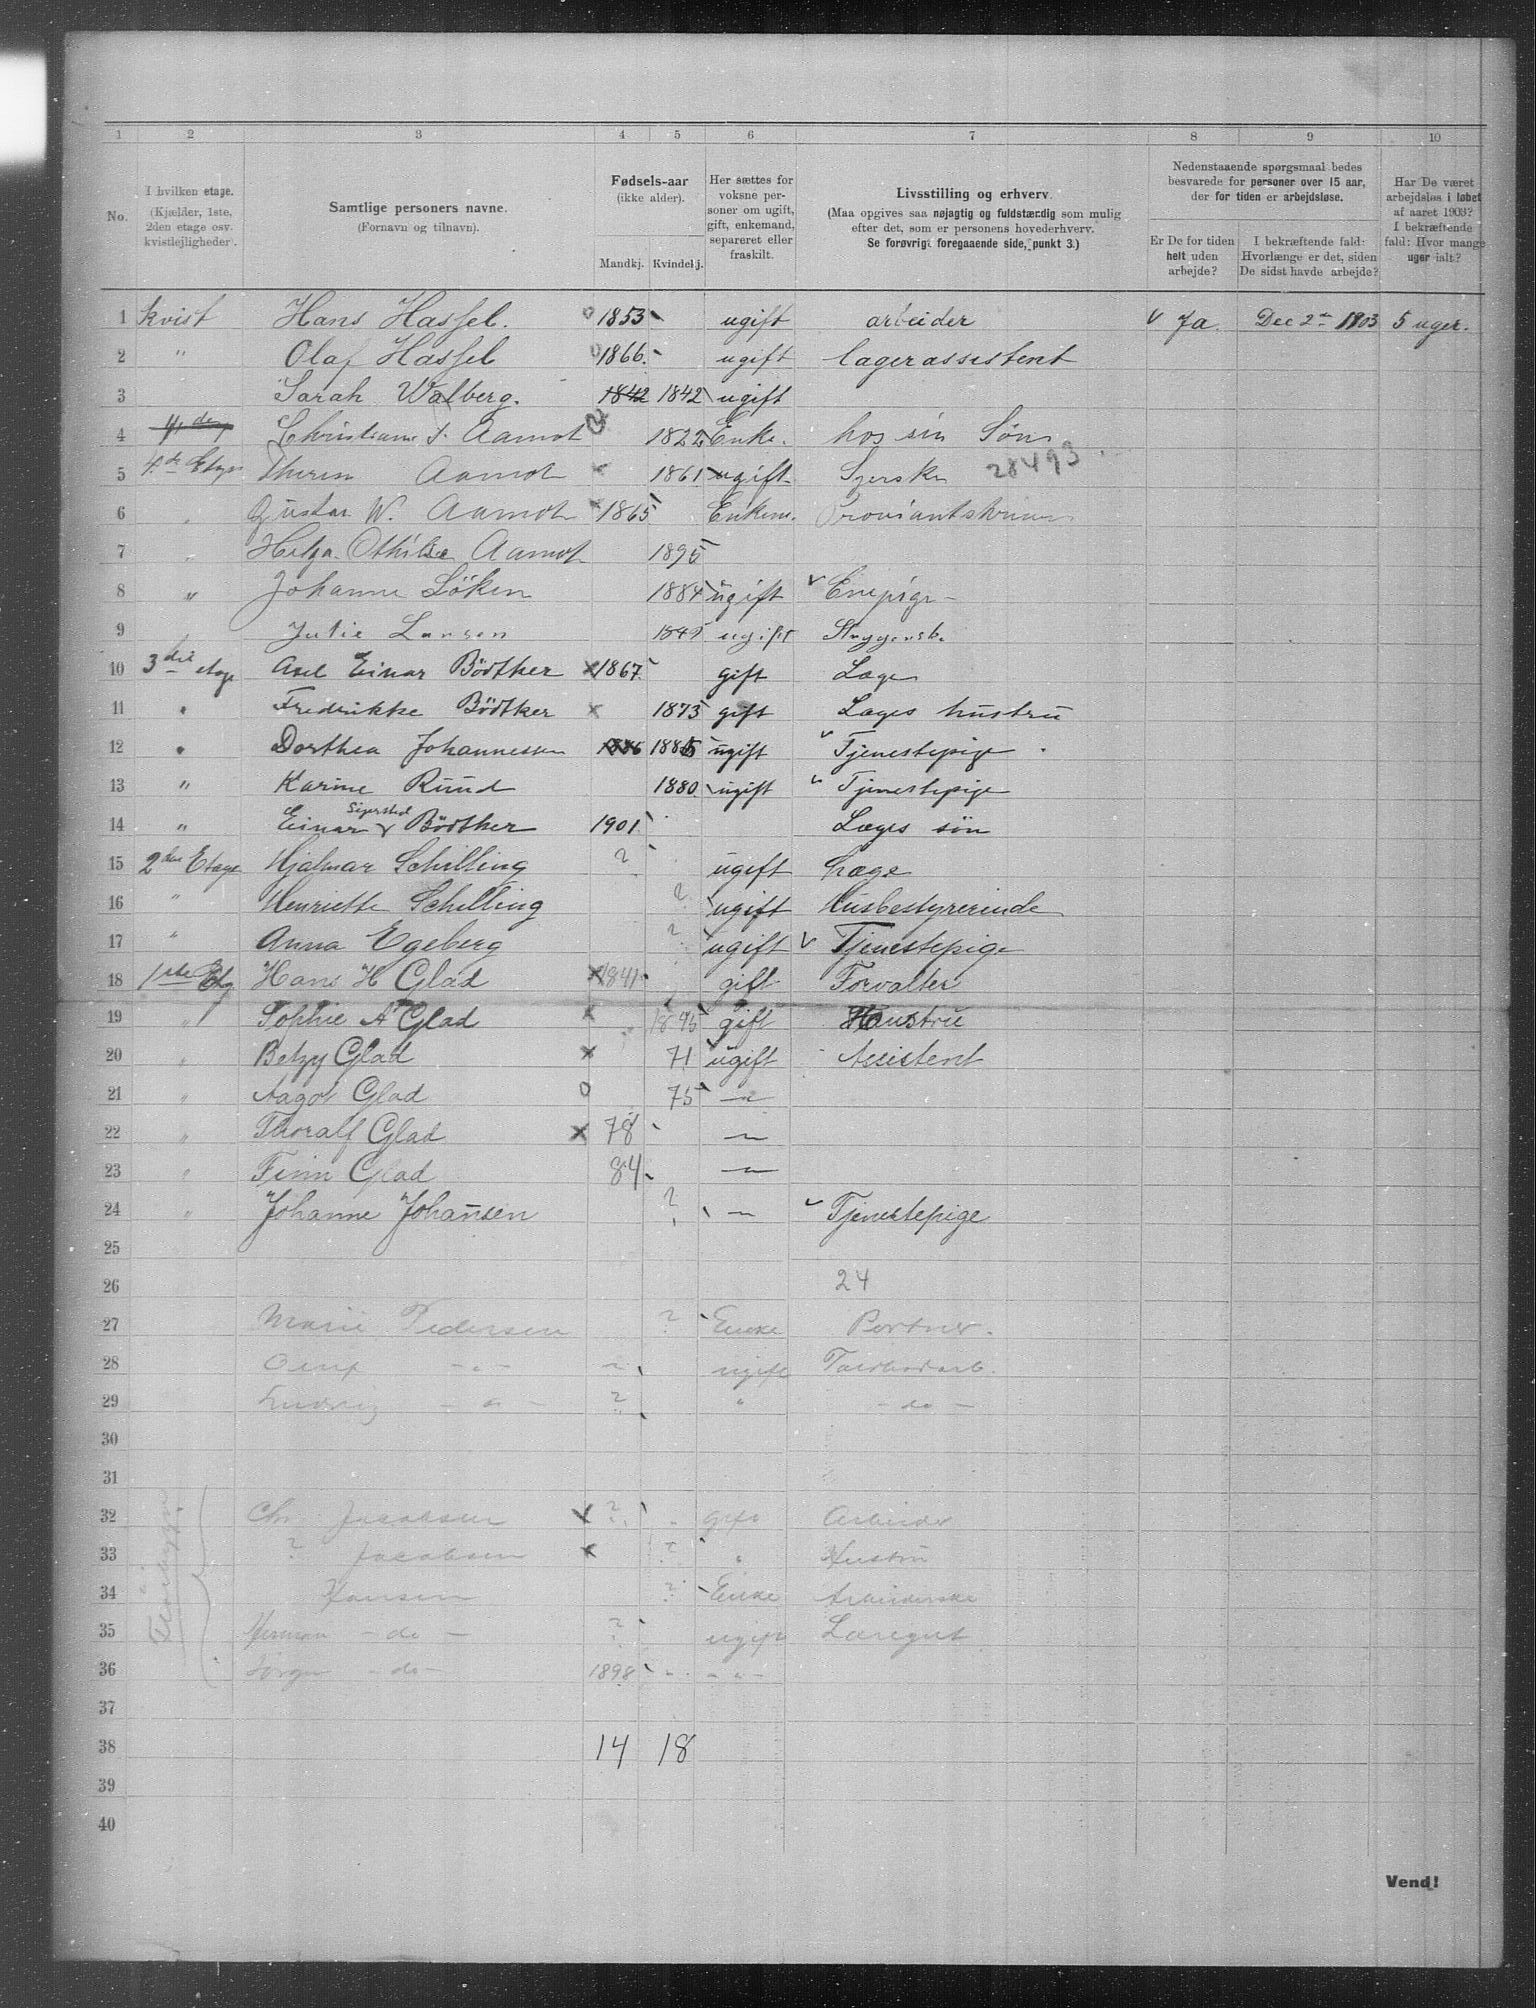 1 2 3 4 5 6 7 8 9 10
No.
I hvilken etage. (Kjælder, 1ste, 2den etage osv. kvistlejligheder).
Samtlige personers navne. (Fornavn og tilnavn).
Fødsels-aar (ikke alder).
Mandkj. Kvindekj.
Her sættes for voksne personer om ugift, gift, enkemand, separeret eller fraskilt.
Livsstilling og erhverv. (Maa opgives saa nøjagtig og fuldstærdig som mulig efter det, som er personens hovederhverv. Se forøvrigt foregaaende side, punkt 3.)
Nedenstaaende spørgsmaal bedes besvarede for personer over 15 aar, der for tiden er arbejdsløse.
Er De for tiden helt uden arbejde?
I bekræftende fald: Hvorlænge er det, siden De sidst havde arbejde?
Har De været arbejdsløs i løbet af aaret 1903? I bekræftende fald: Hvor mange uger ialt?
1 Kvist Hans Hassel. o 1853 ugift arbeider v Ja Dec 2 1903 5 uger.
2 " Olaf Hassel o 1866. ugift lagerassistent
3 Sarah Walberg. 1842 1842 ugift
4 Christiane S. Aamot 1822 Enke. hos sin Søn
5 4de Etage Aamot x 1861 ugift Syerske 28493
6 Gustav W. Aamot x 1865 Enkem.
7 " Helga Othilie Aamot 1895
8 " Johanne Löken 1884 ugift v Enepige
9 Julie Larsen ugift
10 3die etage Axel Einar Bödtker x 1867 gift Læge
11 " Fredrikke Bödtker x 1873 gift Læges hustru
12 " Dorthea Johannessen 1886 ugift v Tjenestepige
13 " Karine Ruud 1880 ugift v Tjenestepige
14 " Einar Bödtker 1901 Læges sön
15 2den Etage Hjalmar Schilling ? ugift Læge
16 " Henriette Schilling ? ugift Husbestyrerinde
17 " Anna Egeberg ? ugift v Tjenestepige
18 1ste Etg Hans H Glad x 1841 gift Forvalter
19 " Sophie A Glad x 1845 gift Hustru
20 " Betzy Glad x 71 ugift Assistent
21 " Aagot Glad o 75 — " —
22 " Thoralf Glad x 78 — " —
23 " Finn Glad 84 — " —
24 " Johanne Johansen ? — " — v Tjenestepige
25
26 24
27 Marie Pedersen ? Enke Portner.
28 — " — ugift
29 Ludvig — " — ? " — do —
30
31
32 Chr Jacobsen x ? gift Arbeider
33 ? Jacobsen x ? " Hustru
34 Hansen ? Enke Arbeiderske
35 Herman — do — ? ugift Læregut
36 Jörgen — do — 1898 — " —
37
38 14 18
39
40
Vend!